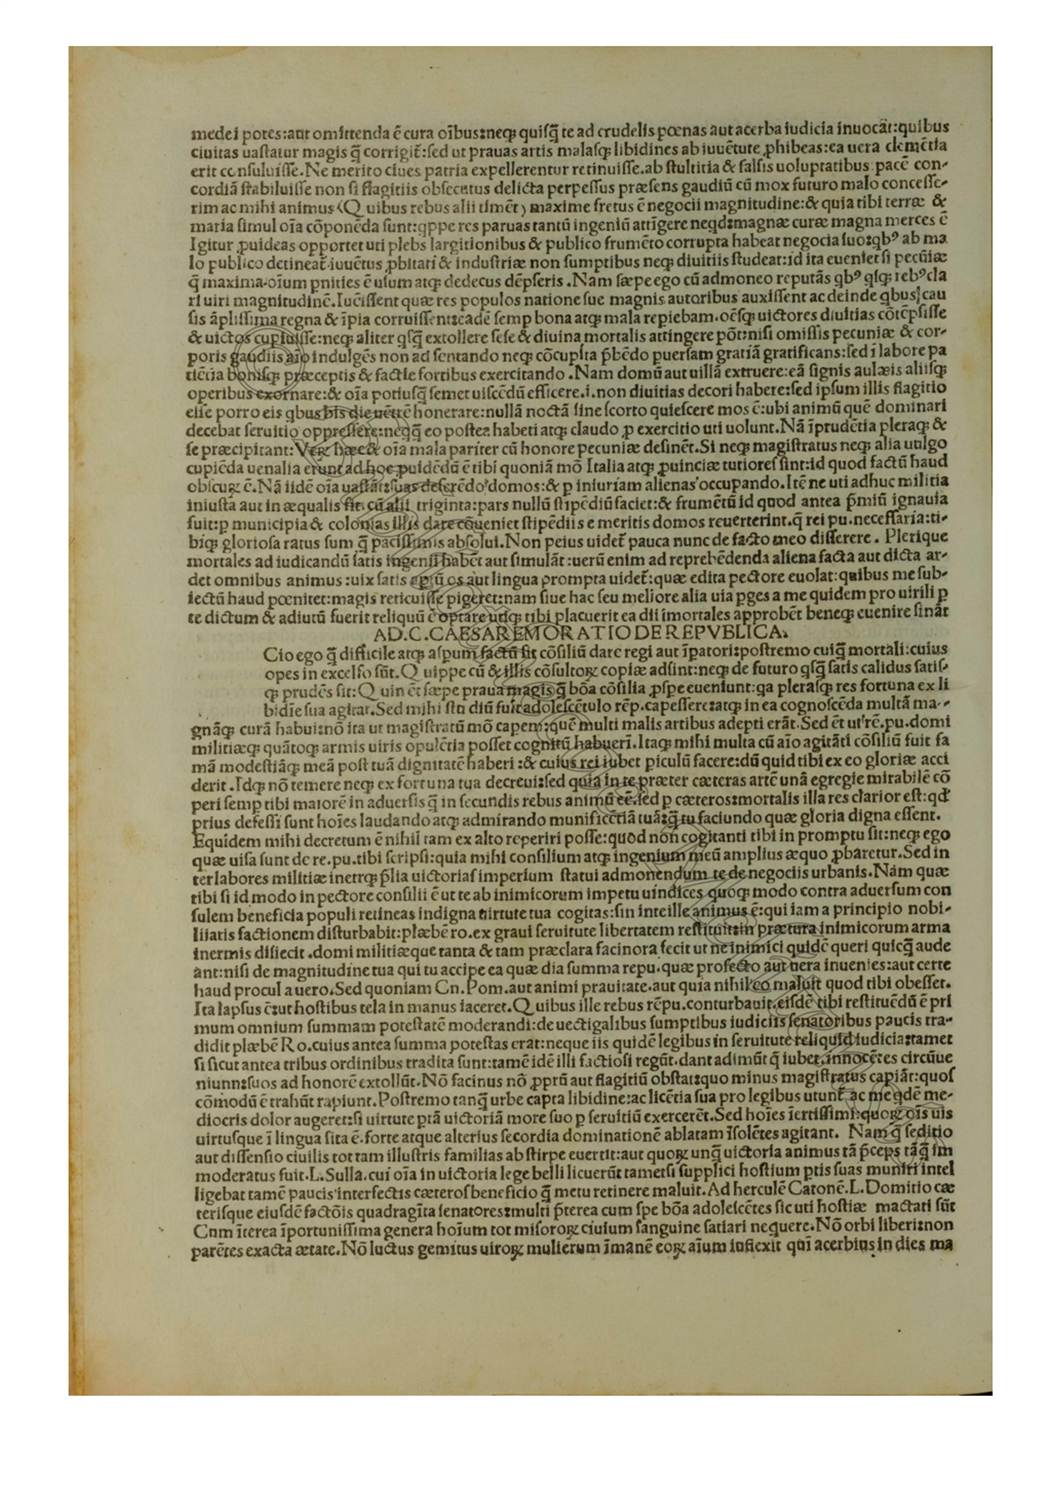 medei potes:aut omittenda ē cura oībus:neqꝫ quisq̄ te ad crudelis pœnas aut acerba iudicia inuocāt:quibus
ciuitas uastatur magis q̄ corrigit̄:sed ut prauas artis malasqꝫ libidines ab iuuētute ꝓhibeas:ea uera clemētia
erit consuluisse.Ne merito ciues patria expellerentur retinuisse.ab stultitia & falsis uoluptatibus pacē con-
cordiā stabiliuisse non si flagitiis obsecutus delicta perpessus præsens gaudiū cū mox futuro malo concesse-
rim ac mihi animus (Quibus rebus alii timēt) maxime fretus ē negocii magnitudine:& quia tibi terræ &
maria simul oīa cōponēda sunt:qppe res paruas tantū ingeniū attīgere neqd:magnæ curæ magna merces ē
Igitur ꝓuideas opportet uti plebs largitionibus & publico frumēto corrupta habeat negocia suo:qbꝰ ab ma
lo publico detineat̄.iuuētus ꝓbitati & industriæ non sumptibus neqꝫ diuitiis studeat:id ita eueniet si pecūiæ
q̄ maxima oīum pnities ē usum atqꝫ dedecus dēpseris.Nam sæpe ego cū admoneo reputās qbꝰ qsqꝫ rebꝰ cla
ri uiri magnitudinē.Iucissent quæ res populos natione sue magnis autoribus auxissent ac deinde qbusꝫ cau
sis āplissima regna & īpia corruissent:eadē semp bona atqꝫ mala repiebam.oēsqꝫ uictores diuitias cōtēpsisse
& uictos cupiuisse:neqꝫ aliter qsq̄ extollere sese & diuina mortalis attingere pōt:nisi omissis pecuniæ & cor-
poris gaudiis aīo indulgēs non ad sentando neqꝫ cōcupita p̄bēdo puersam gratiā gratificans:sed ī labore pa
tiētia bonisqꝫ præceptis & factis fortibus exercitando.Nam domū aut uillā extruere:eā signis aulæis aliisqꝫ
operibus exornare:& oīa potiusq̄ semet uiscēdū efficere.i.non diuitias decori habere:sed ipsum illis flagitio
esse porro eis qbus bis die uētrē honerare:nullā noctā sine scorto quiescere mos ē:ubi animū quē dominari
decebat seruitio oppressere:neqq̄ eo postea habeti atqꝫ claudo ꝑ exercitio uti uolunt.Nā īprudētia pleraqꝫ &
se præcipitant:Veꝝ hæc & oīa mala pariter cū honore pecuniæ desinēt.Si neqꝫ magistratus neqꝫ alia uulgo
cupiēda uenalia erunt ad hoc ꝓuidēdū ē tibi quoniā mō Italia atqꝫ ꝓuinciæ tutiores sint:id quod factū haud
obscuꝝ ē.Nā iidē oīa uastāt:suas deserēdo domos:& ꝑ iniuriam alienas occupando.Itē ne uti adhuc militia
iniusta aut in æqualis sit.cū alii triginta:pars nullū stipēdiū faciet:& frumētū id quod antea p̄miū ignauia
fuit:ꝑ municipia & colonias illis dare cōueniet stipēdiis emeritis domos reuerterint.q̄ rei pu.necessaria:ti-
biqꝫ gloriosa ratus sum q̄ pacissimis absolui.Non peius uidet̄ pauca nunc de facto meo disserere. Plerique
mortales ad iudicandū satis ingenii habēt aut simulāt:uerū enim ad reprehēdenda aliena facta aut dicta ar-
det omnibus animus:uix satis aptū os aut lingua prompta uidet̄:quæ edita pectore euolat:quibus me sub-
iectū haud pœnitet:magis reticuisse pigeret:nam siue hac seu meliore alia uia pges a me quidem pro uirili ꝑ
te dictum & adiutū fuerit reliquū ē optare utiqꝫ tibi placuerit ea dii īmortales approbēt beneqꝫ euenire sināt
AD.C.CAESAREM ORATIO DE REPVBLICA.
Cio ego q̄ difficile atqꝫ aspum factū sit cōsiliū dare regi aut īpatori:postremo cuiqꝫ mortali:cuius
opes in excelso sūt.Quippe cū & illis cōsultoꝝ copiæ adsint:neqꝫ de futuro qsq̄ satis calidus satis-
qꝫ prudēs sit:Quin ēt sæpe praua magis q̄ bōa cōsilia ꝓspe eueniunt:qa plerasqꝫ res fortuna ex li
bidīe sua agitat.Sed mihi studiū fuit adolescētulo rēp.capessere:atqꝫ in ea cognoscēda multā ma-
gnāqꝫ curā habui:nō ita ut magistratū mō capem:quē multi malis artibus adepti erāt.Sed ēt ut rē.pu.domi
militiæqꝫ quātoqꝫ armis uiris opulētia posset cognitū habuerī.Itaqꝫ mihi multa cū aīo agitāti cōsiliū fuit fa
mā modestiāqꝫ meā post tuā dignitatē haberi:& cuius rei iubet piculū facere:dū quid tibi ex eo gloriæ acci
derit.Idqꝫ nō temere neqꝫ ex fortuna tua decreui:sed quia in te præter cæteras artē unā egregie mirabilē cō
peri semp tibi maiorē in aduersis q̄ in secundis rebus animū eē.sed ꝑ cæteros:mortalis illa res clarior est:qd̄
prius defessi sunt hoīes laudando atqꝫ admirando munificētiā tuā:q̄ tu faciundo quæ gloria digna essent.
Equidem mihi decretum ē nihil tam ex alto reperiri posse:quod non cogitanti tibi in promptu sit:neqꝫ ego
quæ uisa sunt de re.pu.tibi scripsi:quia mihi consilium atqꝫ ingenium meū amplius æquo ꝓbaretur.Sed in
ter labores militiæ inetrqꝫ p̄lia uictorias imperium statui admonendum te de negociis urbanis.Nam quæ
tibi si id modo in pectore consilii ē ut te ab inimicorum impetu uindices quoqꝫ modo contra aduersum con
sulem beneficia populi retineas indigna uirtute tua cogitas:sin inte ille animus ē:qui iam a principio nobi-
liiatis factionem disturbabit:plæbē ro.ex graui seruitute libertatem restituit:in prætura inimicorum arma
inermis disiecit.domi militiæque tanta & tam præclara facinora fecit ut ne inimici quidē queri quicq̄ aude
ant:nisi de magnitudine tua qui tu accipe ea quæ dia summa repu.quæ profecto aut uera inuenies:aut certe
haud procul a uero.Sed quoniam Cn.Pom.aut animi prauitate.aut quia nihil eo maluit quod tibi obesset.
Ita lapsus ē:ut hostibus tela in manus iaceret.Quibus ille rebus rēpu.conturbauit.eisdē tibi restituēdū ē pri
mum omnium summam potestatē moderandi:de uectigalibus sumptibus iudiciis senatoribus paucis tra-
didit plæbē Ro.cuius antea summa potestas erat:neque iis quidē legibus in seruitute reliquid iudicia:tamet
si sicut antea tribus ordinibus tradita sunt:tamē idē illi factiosi regūt.dant adimūt q̄ iubet.innocētes circūue
niunn:suos ad honorē extollūt.Nō facinus nō ꝓprū aut flagitiū obstat:quo minus magistratus capiāt:quos
cōmodū ē trahūt rapiunt.Postremo tanq̄ urbe capta libidine:ac licētia sua pro legibus utunt̄ ac me qdē me-
diocris dolor augeret:si uirtute ptā uictoriā more suo ꝑ seruitiū exercerēt.Sed hoīes īertissimi:quoꝝ oīs uis
uirtusque ī lingua sita ē.forte atque alterius secordia dominationē ablatam īsolētes agitant. Nam q̄ seditio
aut dissensio ciuilis tot tam illustris familias ab stirpe euertit:aut quoꝝ unq̄ uictoria animus tā p̄ceps tāq̄ im
moderatus fuit.L.Sulla.cui oīa in uictoria lege belli licuerūt tametsi supplici hostium ptis suas muniri intel
ligebat tamē paucis interfectis cæteros beneficio q̄ metu retinere maluit.Ad herculē Catonē.L.Domitio cæ
terisque eiusdē factōis quadragīta senatores:multi p̄terea cum spe bōa adolescētes sic uti hostiæ mactati sūt
Cum īterea īportunissima genera hoīum tot misoroꝝ ciuium sanguine satiari nequere.Nō orbi liberi:non
parētes exacta ætate.Nō luctus gemitus uiroꝝ mulierum īmanē eoꝝ aīum inflexit quī acerbius in dies ma